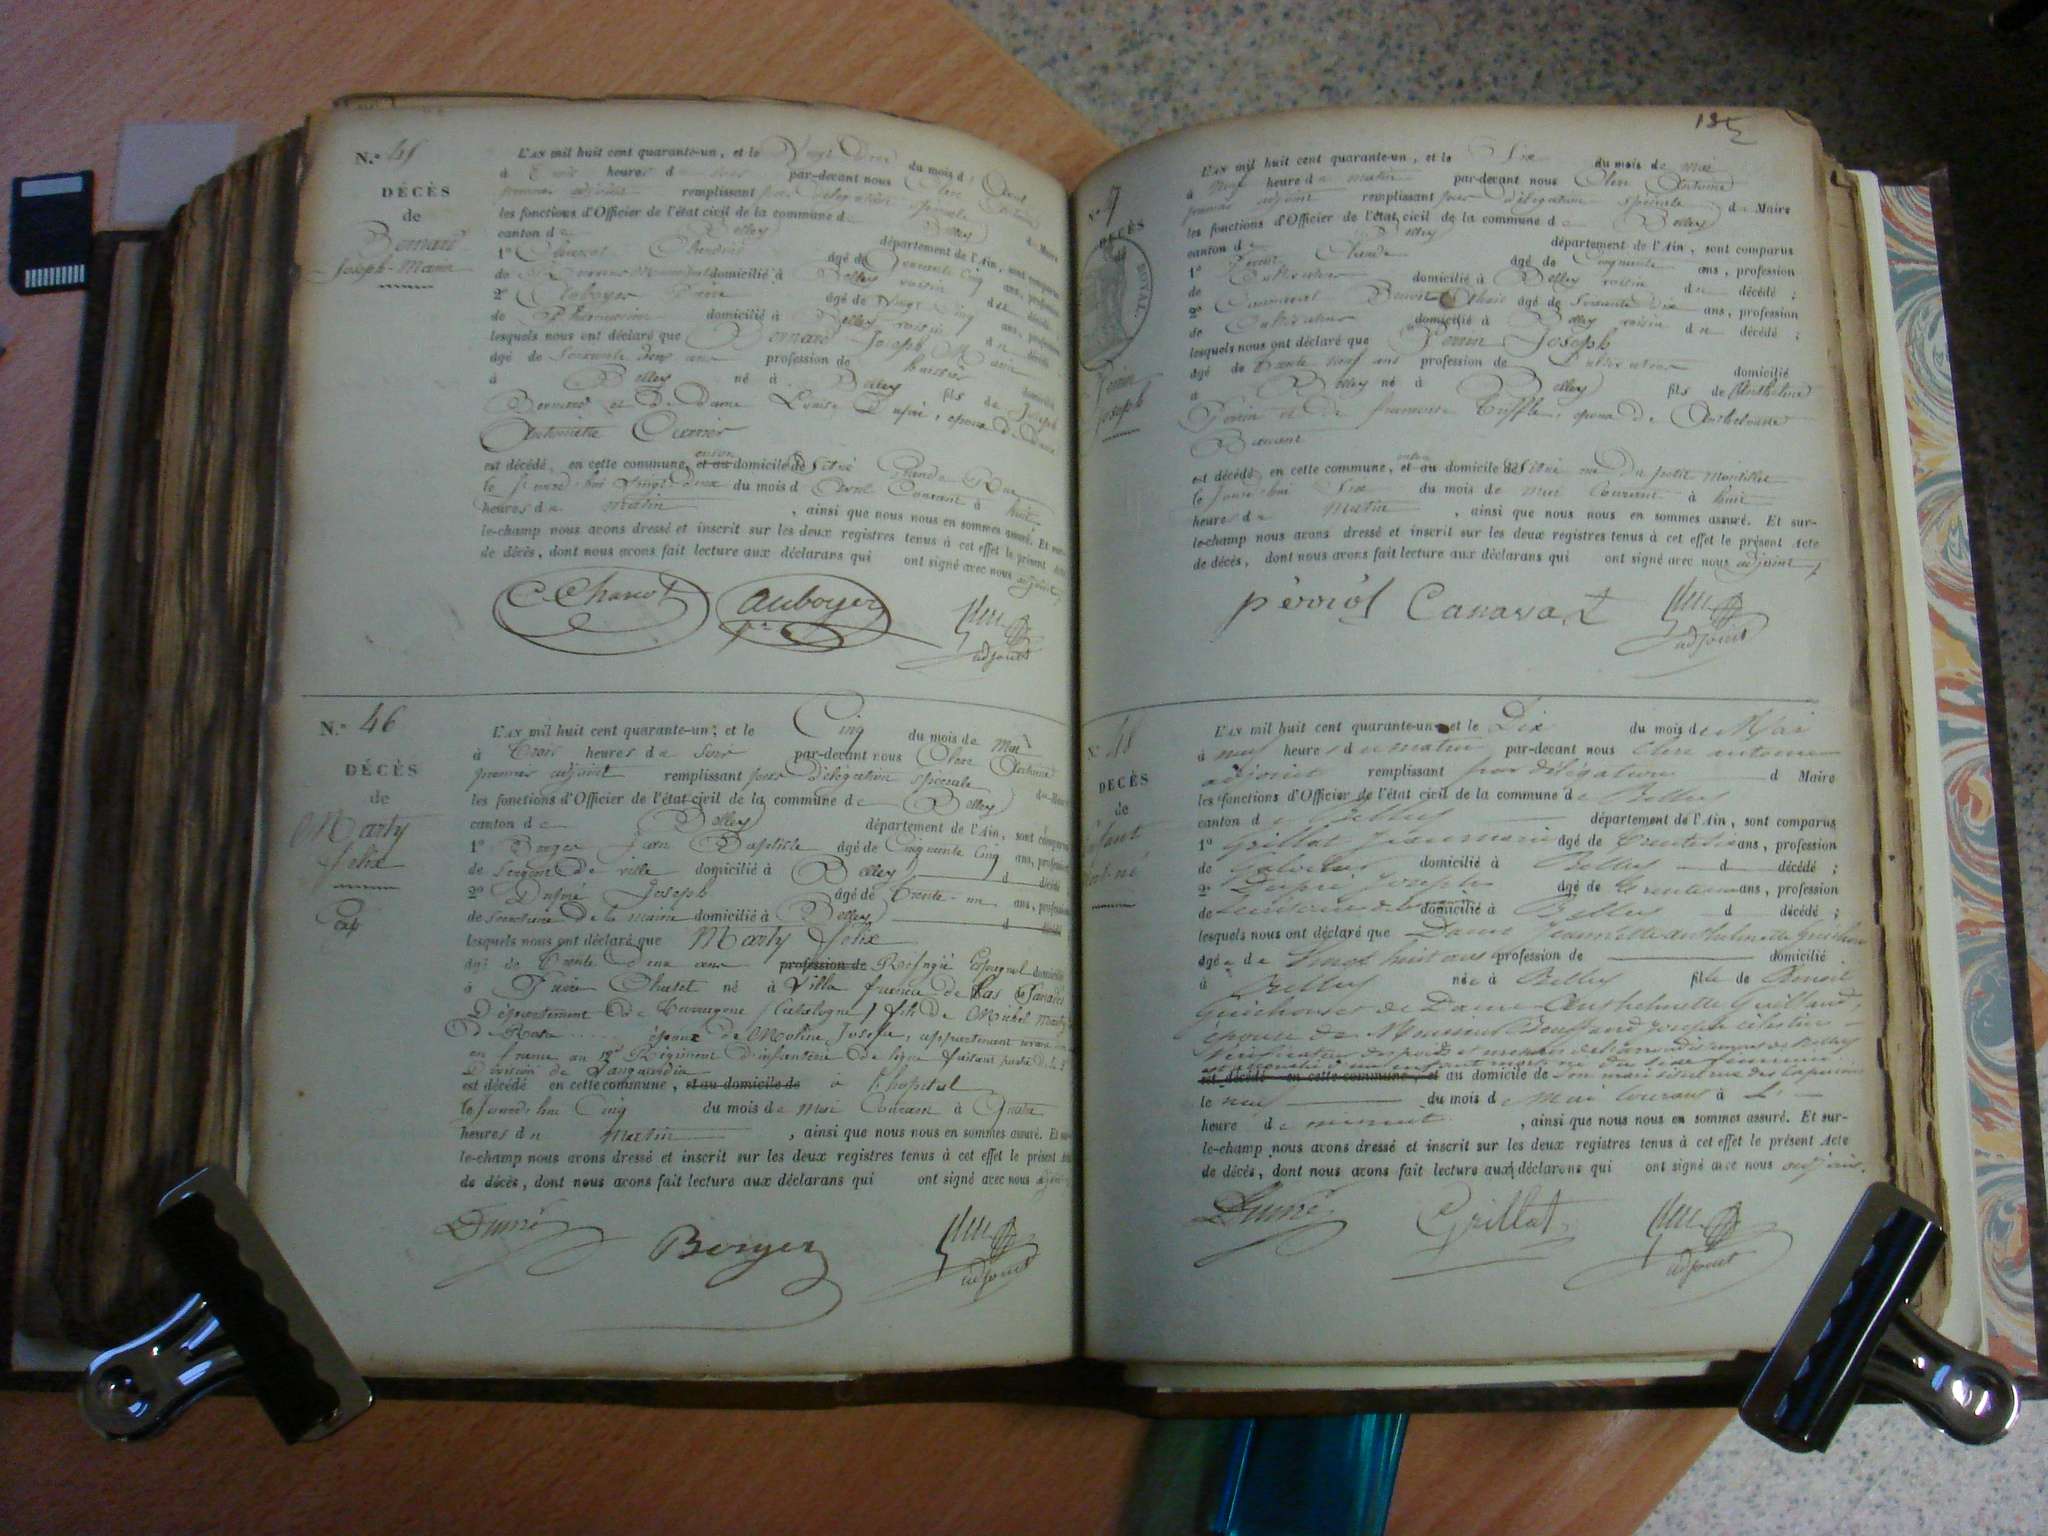 N.º 45
DÉCÈS
de
Bernard
Joseph-Marie
L'AN mil huit cent quarante-un, et le Vingt Deux du mois d' Avril
à Trois heures du soir par-devant nous Clerc Antoine
premier adjoint remplissant par délégation spéciale d Maire
les fonctions d'Officier de l'état civil de la commune de Belley
canton de Belley département de l'Ain, sont comparus
1º Charcot âgé de Quarante Cinq ans, profession
de domicilié à Belley voisin du décédé
2º Auboyer âgé de Vingt Cinq ans, profession
de Pharmacien domicilié à Belley voisin du décédé
lesquels nous ont déclaré que Bernard Joseph Marie
âgé de Soixante deux ans profession de huissier domicilié
à Belley né à Belley fils de Joseph
Bernard et de Dame Louise Dufour, époux de Dame
Antoinette
est décédé, en cette commune, et au domicile de situé Grande Rue
le jourd'hui Vingt deux du mois d' Avril Courant à huit
heures du matin, ainsi que nous nous en sommes assuré. Et sur-
le-champ nous avons dressé et inscrit sur les deux registres tenus à cet effet le présent Acte
de décès, dont nous avons fait lecture aux déclarans qui ont signé avec nous adjoint
C Charcot Auboyer adjoint
N.º 46
DÉCÈS
de
Marty
félix
L'AN mil huit cent quarante-un, et le Cinq du mois de Mai
à Trois heures du soir par-devant nous Clerc Antoine
premier adjoint remplissant par délégation spéciale de Maire
les fonctions d'Officier de l'état civil de la commune de Belley
canton de Belley département de l'Ain, sont comparus
1º Berger Jean Baptiste âgé de Cinquante Cinq ans, profession
de Sergent de ville domicilié à Belley d décédé
2º Dupré Joseph âgé de Trente-un ans, profession
de Secrétaire de la mairie domicilié à Belley d décédé
lesquels nous ont déclaré que Marty félix
âgé de Trente deux ans profession de Réfugié Espagnol domicilié
à né à Villa franca de Las Panades
Département de Tarragone (Catalogne) fils de Michel Marty
De Rosa époux de Molina Josefa, appartenant
en france au Régiment d'infanterie de ligne faisant partie de la
Division de
est décédé en cette commune, et au domicile de à l'hopital
le jourd'hui Cinq du mois de Mai Courant à Quatre
heures du Matin, ainsi que nous nous en sommes assuré. Et sur-
le-champ nous avons dressé et inscrit sur les deux registres tenus à cet effet le présent Acte
de décès, dont nous avons fait lecture aux déclarans qui ont signé avec nous adjoint
Dupré Berger adjoint
185
N.º 7
DÉCÈS
ROYAL
Perrin
Joseph
L'AN mil huit cent quarante-un, et le Six du mois de mai
à neuf heures du matin par-devant nous Clerc Antoine
premier adjoint remplissant par délégation spéciale d Maire
les fonctions d'Officier de l'état civil de la commune de Belley
canton de Belley département de l'Ain, sont comparus
1º Claude âgé de Cinquante ans, profession
de Cultivateur domicilié à Belley voisin du décédé ;
2º Canavat Benoit âgé de Soixante Dix ans, profession
de Cultivateur domicilié à Belley voisin du décédé ;
lesquels nous ont déclaré que Perrin Joseph
âgé de trente neuf ans profession de Cultivateur domicilié
à Belley né à Belley fils de Anthelme
Perrin et de francoise époux de Anthelmette
est décédé, en cette commune, et au domicile de situé rue du petit
le jourd'hui Six du mois de mai Courant à huit
heures du Matin, ainsi que nous nous en sommes assuré. Et sur-
le-champ nous avons dressé et inscrit sur les deux registres tenus à cet effet le présent Acte
de décès, dont nous avons fait lecture aux déclarans qui ont signé avec nous adjoint
Canavat adjoint
N.º 48
DÉCÈS
de
enfant
mort-né
L'AN mil huit cent quarante-un et le Dix du mois de Mai
à neuf heures du matin par-devant nous Clerc antoine
adjoint remplissant par délégation d Maire
les fonctions d'Officier de l'état civil de la commune de Belley
canton de Belley département de l'Ain, sont comparus
1º Grillat Jeanmarie âgé de ans, profession
de domicilié à Belley d décédé ;
2º Dupré Joseph âgé de trente un ans, profession
de domicilié à Belley d décédé ;
lesquels nous ont déclaré que Dame Jeannette anthelmette
âgée de Vingt huit ans profession de domicilié
à Belley née à Belley fille de Benoit
et de Dame Anthelmette
épouse de Monsieur
Vérificateur des poids et mesures de l'arrondissement de Belley
est décédé en cette commune, et au domicile de son mari situé rue des Capucins
le neuf du mois de Mai courant à
heure de minuit, ainsi que nous nous en sommes assuré. Et sur-
le-champ nous avons dressé et inscrit sur les deux registres tenus à cet effet le présent Acte
de décès, dont nous avons fait lecture aux déclarans qui ont signé avec nous adjoint.
Dupré Grillat adjoint